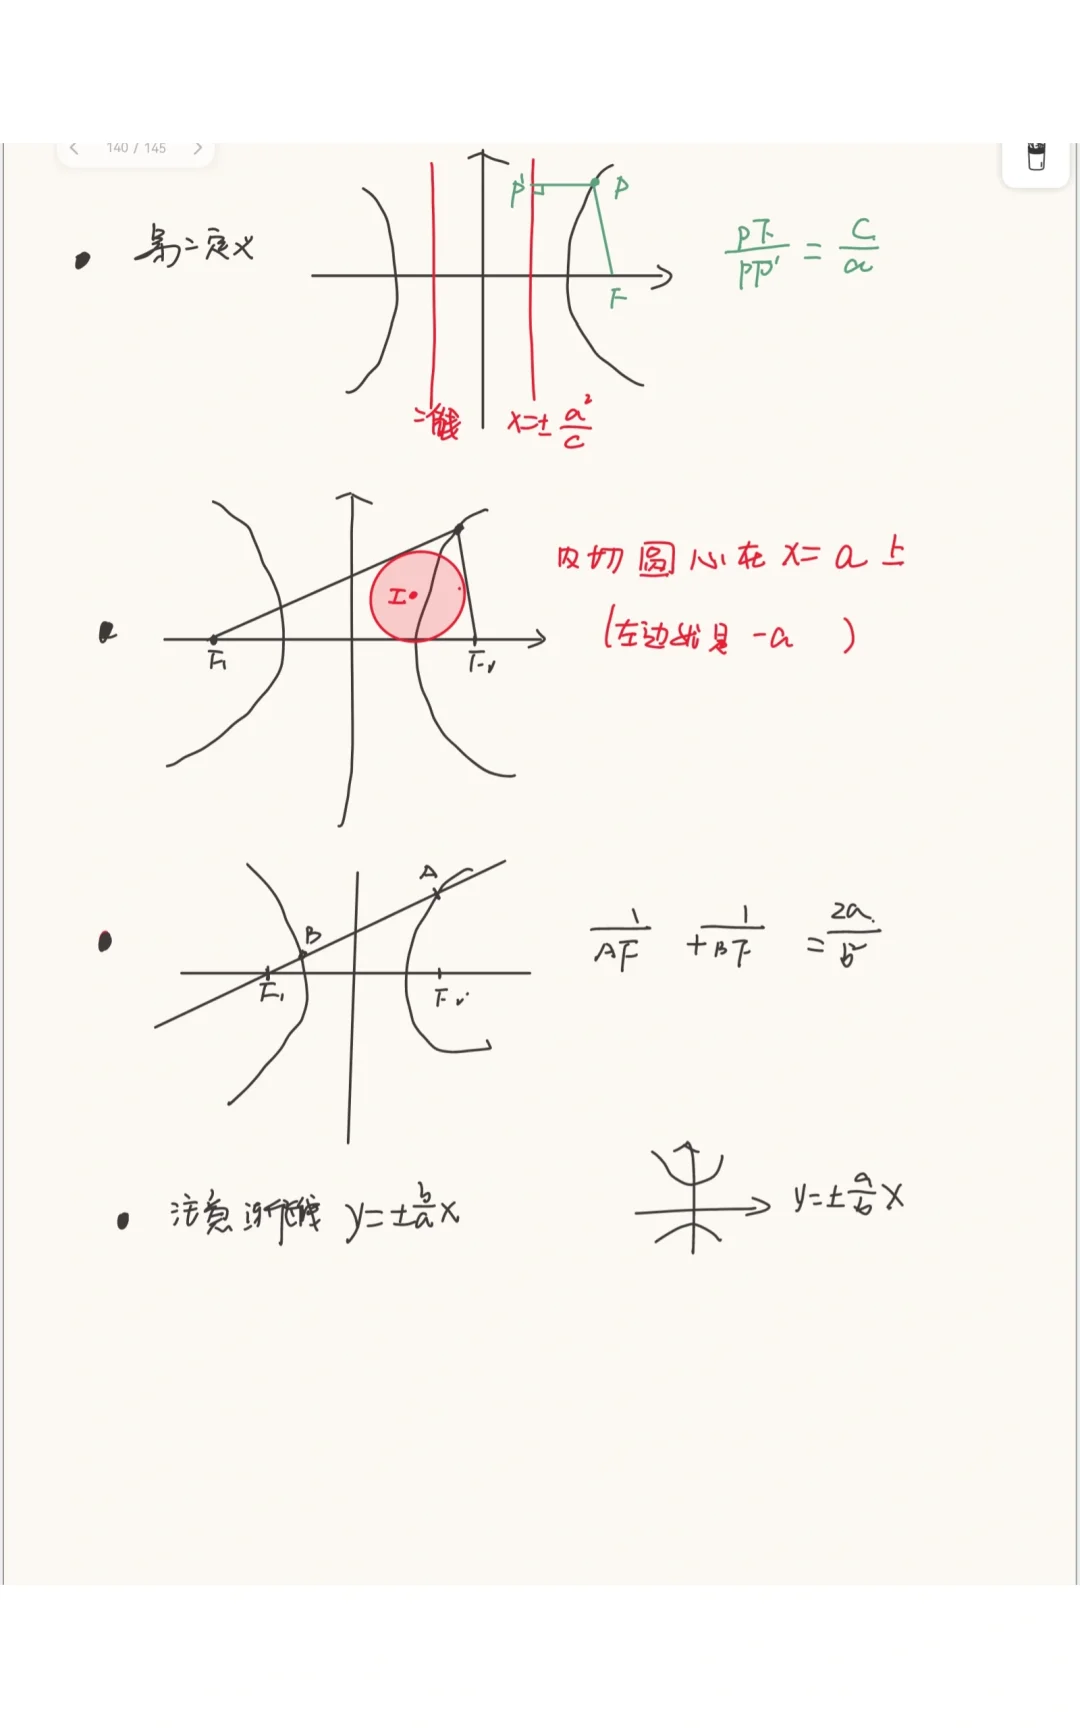 140 / 145
第二定义
P' P
F
PF/PP' = c/a
准线 x=± a²/c
I
F₁ F₂
内切圆心在 x=a 上
(左边就是 -a )
A
B
F₁ F₂
1/AF + 1/BF = 2a/b²
注意渐近线 y=± b/a x
y=± a/b x